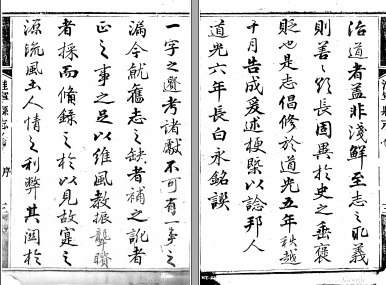 一字之遺考諸獻不可有一事之
漏今就舊志之缺者補之訛者
正之事之足以維風教振聾聵
者採而備錄之於以見故寔之
源流風土人情之利弊其關於
治道者蓋非淺鮮至志之取義
則善〻長固異於史之垂褒
貶也是志倡修於道光五年秋越
十月告成爰述梗槩以諗邦人
道光六年長白永銘譔
縣志
序